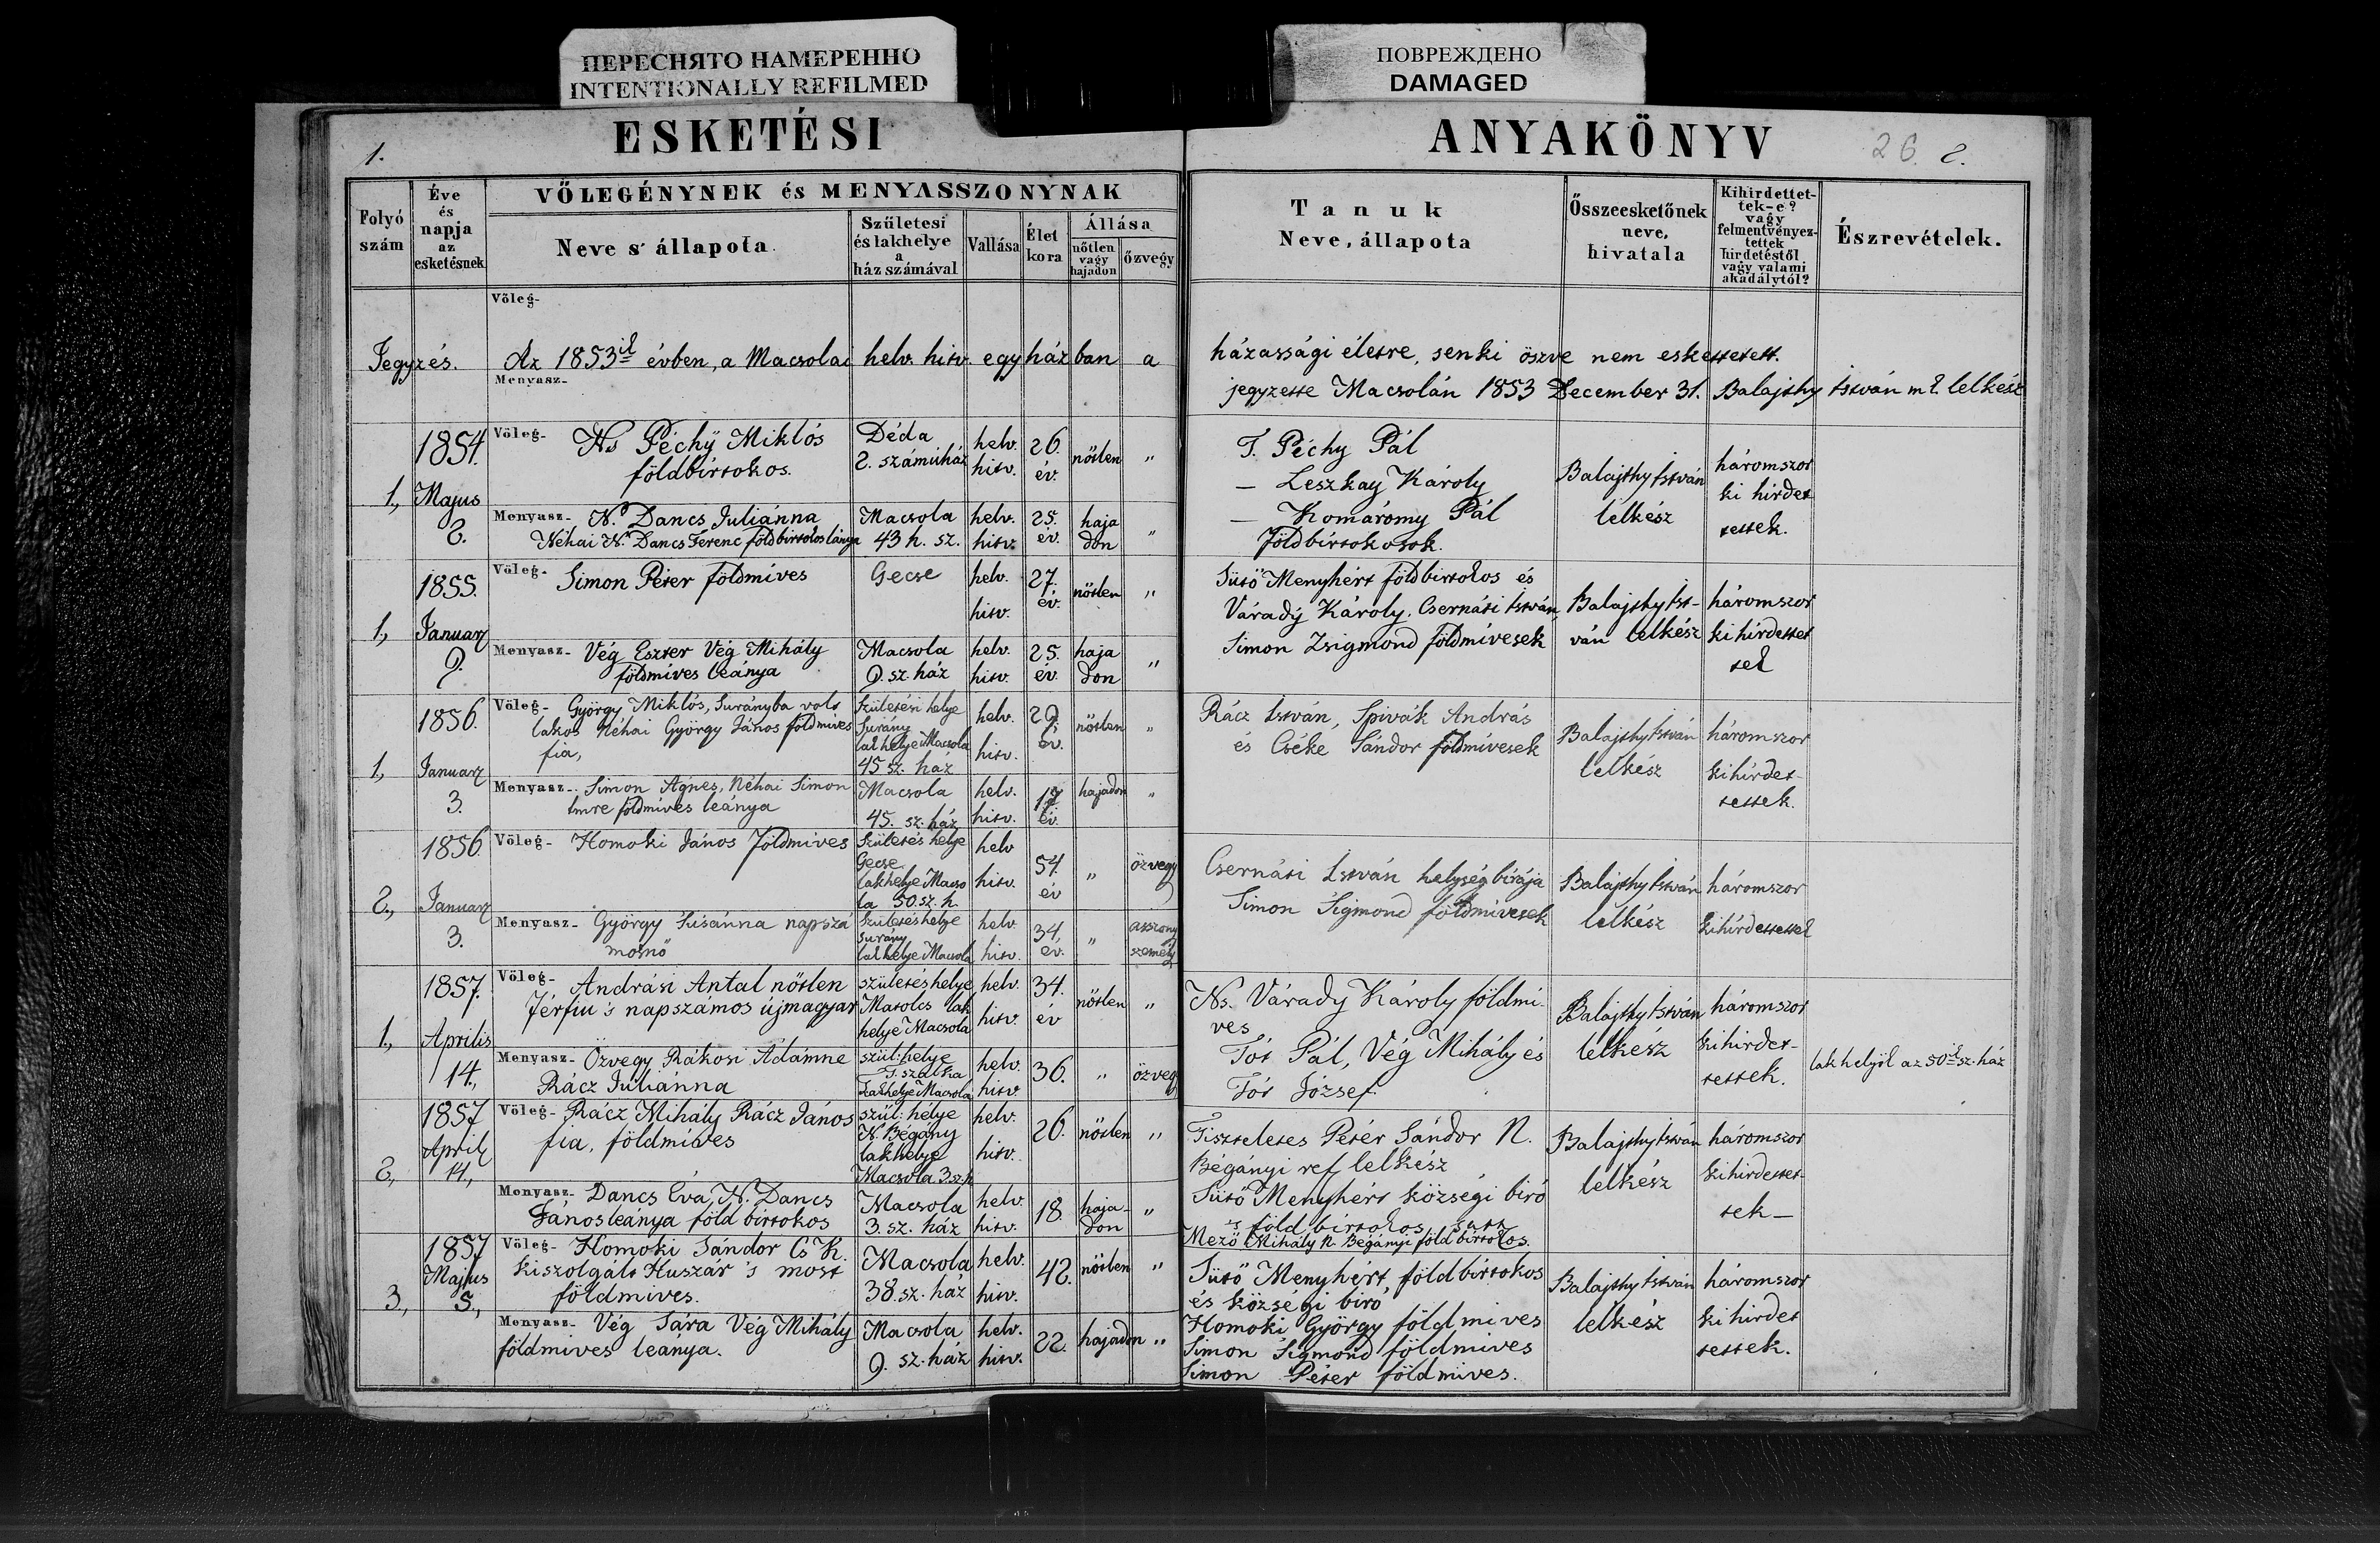 ПЕРЕСНЯТО НАМЕРЕННО
INTENTIONALLY REFILMED
ПОВРЕЖДЕНО
DAMAGED
1.
ESKETÉSI
ANYAKÖNYV
26. 2.
Folyó szám
Éve és napja az esketésnek
VŐLEGÉNYNEK és MENYASSZONYNAK
Neve s' állapota.
Születesi és lakhelye a ház számával
Vallása
Élet kora
Állása
nőtlen vagy hajadon
özvegy
Tanuk
Neve, állapota
Összeesketőnek neve, hivatala
Kihirdettettek-e? vagy felmentvényeztettek hirdetéstől vagy valami akadálytól?
Észrevételek.
Völeg-
Jegyzés. Az 1853ik évben, a Macsolai helv. hitv. egyházban a házassági életre, senki öszve nem eskettetett.
Menyasz-
jegyzette Macsolán 1853 December 31. Balajthy István m k. lelkész
1854.
1., Majus
2.
Völeg- Ns Péchÿ Miklós
földbirtokos.
Déda
2. számúház
helv.
hitv.
26.
év.
nőtlen
"
Menyasz- N. Dancs Juliánna
Néhai N. Dancs Ferenc földbirtokos lánya
Macsola
43 h. sz.
helv.
hitv.
25.
év.
haja
don
"
T. Péchy Pál
— Leszkay Károly
— Komáromy Pál
földbirtokosok.
Balajthy István
lelkész
háromszor
ki hirdet
tettek.
1855.
1., Januar
9.
Völeg- Simon Péter földmíves
Gecse
helv.
hitv.
27.
év.
nőtlen
"
Menyasz- Vég Eszter Vég Mihály
földmíves leánya
Macsola
9. sz. ház
helv.
hitv.
25.
év.
haja
don
"
Sütő Menyhért földbirtokos és
Várady Károly. Csernáti István,
Simon Zsigmond földmívesek
Balajthy Ist-
ván lelkész
háromszor
kihirdettet
tek
1856.
1., Januar
3.
Völeg- György Miklós, Surányba volt
lakos Néhai György János földmíves
fia,
Születési helye
Surány
lakhelye Macsola
45 sz. ház
helv.
hitv.
29.
év.
nőtlen
"
Menyasz- Simon Ágnes, Néhai Simon
Imre földmíves leánya
Macsola
45. sz. ház
helv.
hitv.
17.
év.
hajadon
"
Rácz István, Spivák András
és Cséke Sándor földmívesek
Balajthy István
lelkész
háromszor
kihirdet-
tettek.
1856.
2., Januar
3.
Völeg- Homoki János földmíves
Születés helye
Gecse
lakhelye Macso
la 50. sz. h.
helv
hitv.
54.
év
"
özvegy
Menyasz- György Susánna napszá
mosnő
Születés helye
Surány
lakhelye Macsola
helv.
hitv.
34.
év.
"
asszony
személy
Csernáti István helység birája
Simon Sigmond földmívesek
Balajthy István
lelkész
háromszor
kihirdettettek
1857.
1., Aprilis
14.,
Völeg- Andrási Antal nőtlen
férfiu 's napszámos újmagyar
születéshelye
Matolcs lak
helye Macsola
helv.
hitv.
34.
ev
nőtlen
"
Menyasz- Özvegy Rákosi Ádámne
Rácz Juliánna
szül: helye
T. szalka
Lakhelye Macsola
helv.
hitv.
36.
"
özvegy
Ns. Várady Károly földmi-
ves
Tót Pál, Vég Mihály és
Tót József.
Balajthy István
lelkész
háromszor
kihirdet-
tettek.
lakhelyök az 50ik sz. ház
1857
April
2., 14.,
Völeg- Rácz Mihály Rácz János
fia, földmíves
szül: hélye
N. Bégány
lakhelye
Macsola. 3. sz. h
helv.
hitv.
26.
nőtlen
"
Menyasz- Dancs Eva, N. Dancs
János leánya föld birtokos
Macsola
3. sz. ház
helv.
hitv.
18.
haja-
don
"
Tiszteletes Petér Sándor N.
Bégányi ref lelkész
Sütő Menyhért községi biró
's föld birtokos
Mező Mihály N. Bégányi föld birtokos.
Balajthy István
lelkész
háromszor
kihirdettet-
tek—
1857
Majus
3., 5.,
Völeg- Homoki Sándor Cs K.
kiszolgált Huszár 's most
földmives.
Macsola
38. sz. ház
helv.
hitv.
42.
nőtlen
"
Menyasz- Vég Sára Vég Mihály
földmives leánya.
Macsola
9. sz. ház
helv.
hitv.
22.
hajadon
"
Sütő Menyhért földbirtokos
és községi biró
Homoki György földmives
Simon Sigmond földmives
Simon Péter földmives.
Balajthy István
lelkész
háromszor
kihirdet
tettek.